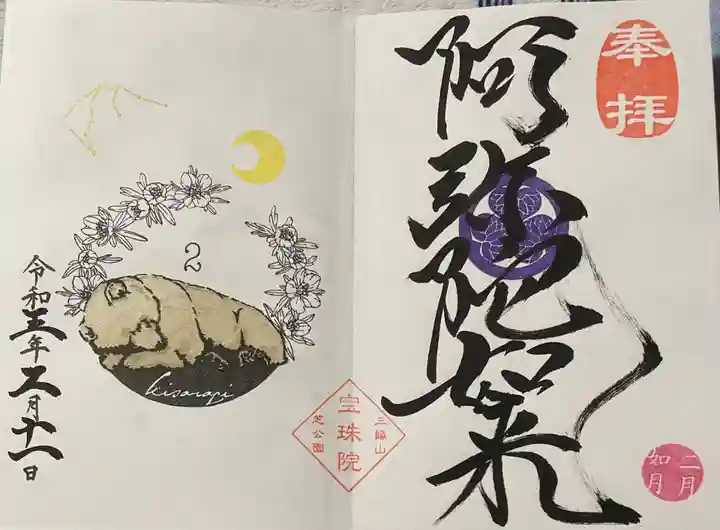 奉拝
阿弥陀如来
二月
如月
三縁山
宝珠院
芝公園
2
kisaragi
令和五年二月十一日